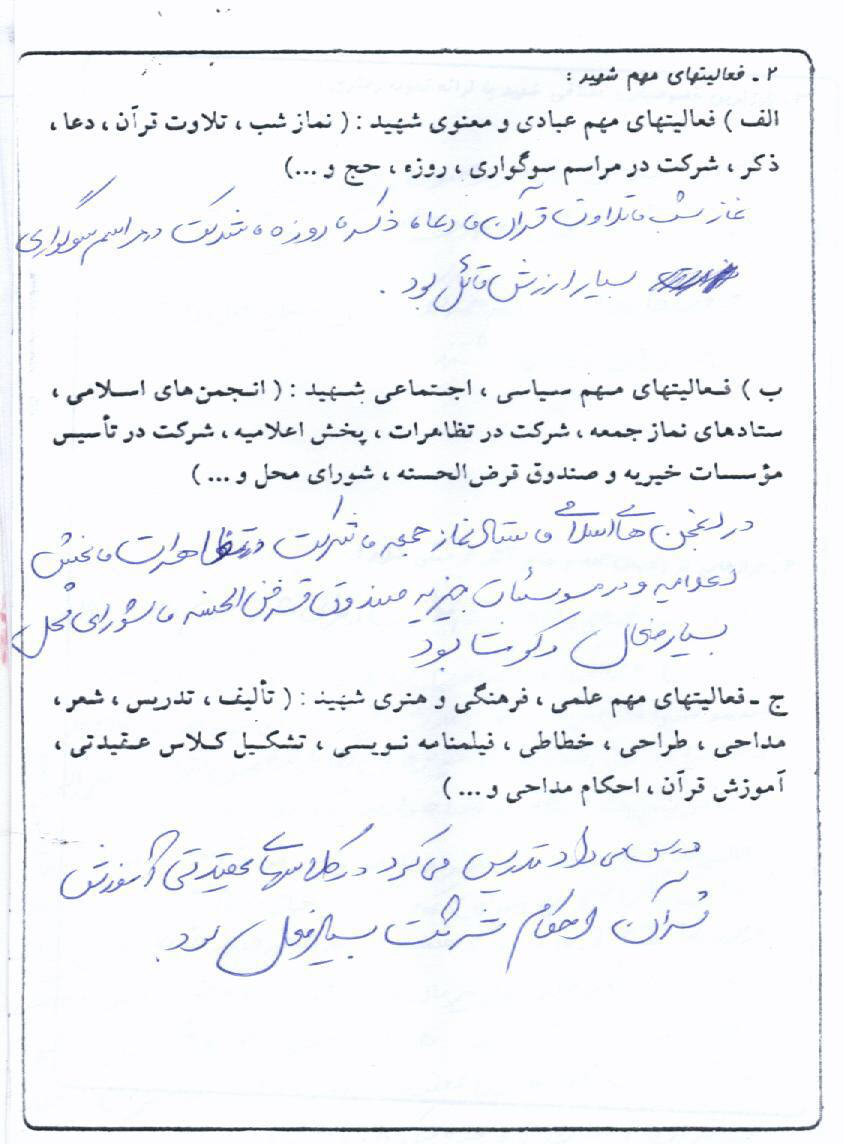 ۲ ـ فعالیتهای مهم شهید :
الف ) فعالیتهای مهم عبادی و معنوی شهید : ( نماز شب ، تلاوت قرآن ، دعا ،
ذکر ، شرکت در مراسم سوگواری ، روزه ، حج و ...)
نماز شب ، تلاوت قرآن ، دعا ، ذکر ، روزه ، شرکت در مراسم سوگواری
بسیار ارزش قائل بود .
ب ) فعالیتهای مهم سیاسی ، اجتماعی شهید : ( انجمن‌های اسلامی ،
ستادهای نماز جمعه ، شرکت در تظاهرات ، پخش اعلامیه ، شرکت در تأسیس
مؤسسات خیریه و صندوق قرض‌الحسنه ، شورای محل و ... )
در انجمن های اسلامی ، ستاد نماز جمعه ، شرکت در تظاهرات ، پخش
اعلامیه و در موسسات خیریه صندوق قرض الحسنه ، شورای محل
بسیار فعال و کوشا بود
ج ـ فعالیتهای مهم علمی ، فرهنگی و هنری شهید : ( تألیف ، تدریس ، شعر ،
مداحی ، طراحی ، خطاطی ، فیلمنامه نویسی ، تشکیل کلاس عقیدتی ،
آموزش قرآن ، احکام مداحی و ... )
درس می داد تدریس می کرد در کلاسهای عقیدتی آموزش
قرآن احکام شرکت بسیار فعال بود .